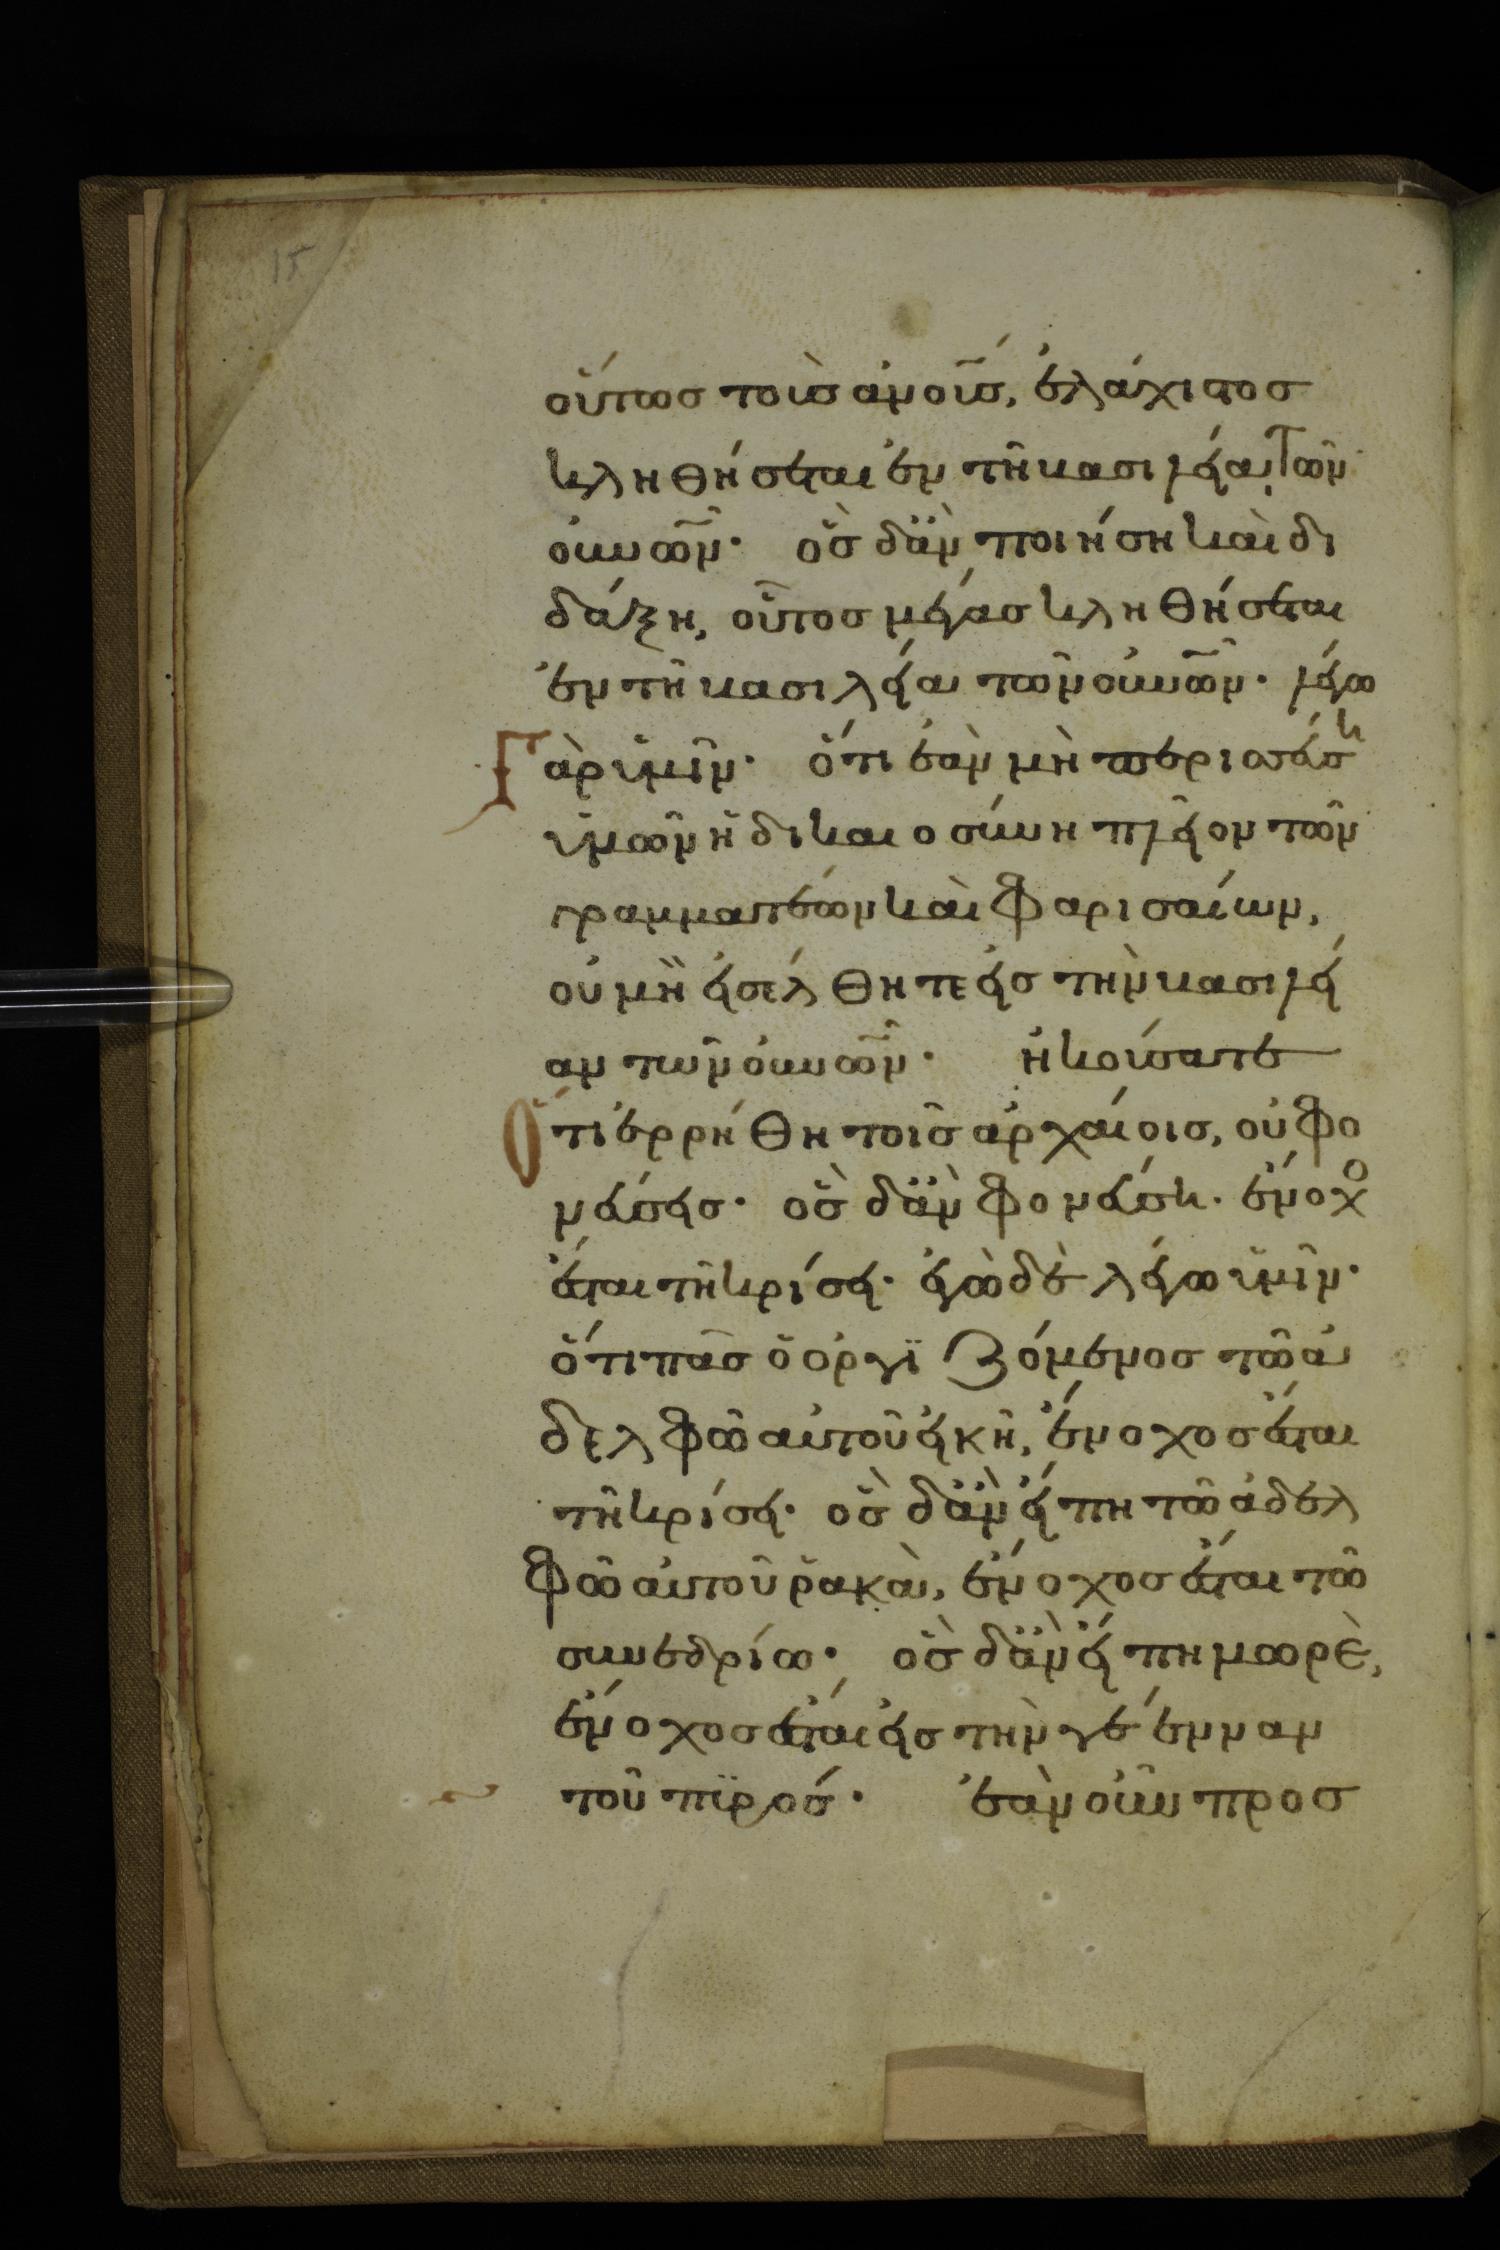 15
οὕτωσ τοὺσ ἀνο̅υσ, ἐλάχιστοσ
κληθήσεται ἐν τῆ βασιλεία τῶν
οὐνῶ̅ν· ὃσ δἂν ποιήση καὶ δι
δάξη, οὗτοσ μέγασ κληθήσεται
ἐν τῆ βασιλεία τῶν οὐνῶ̅ν· λέγω
Γὰρ ὑμῖν· ὅτι ἐὰν μὴ περισσεύση
ὑμῶν ἡ δικαιοσύνη πλεῖον τῶν
γραμματέων καὶ Φαρισαίων,
οὐ μὴ εἰσέλθητε εἰσ τὴν βασιλεί
αν τῶν οὐνῶ̅ν· ἠκούσατε
Ὅτι ἐρρήθη τοῖσ ἀρχαίοισ, οὐ φο
νεύσεισ· ὃσ δἂν φονεύση· ἔνοχοσ
ἔσται τῆ κρίσει· ἐγὼ δὲ λέγω ὑμῖν·
ὅτι πᾶσ ὁ ὀργϊζόμενοσ τῶ ἀ
δελφῶ αὐτοῦ εἰκῆ, ἔνοχοσ ἔσται
τῆ κρίσει· ὃσ δἂν εἴπη τῶ ἀδελ
φῶ αὐτοῦ ῥακὰ, ἔνοχοσ ἔσται τῶ
συνεδρίω· ὃσ δἂν εἴπη μωρὲ,
ἔνοχοσ ἔσται εἰσ τὴν γέενναν
τοῦ πϋρόσ· ἐὰν οὖν προσ